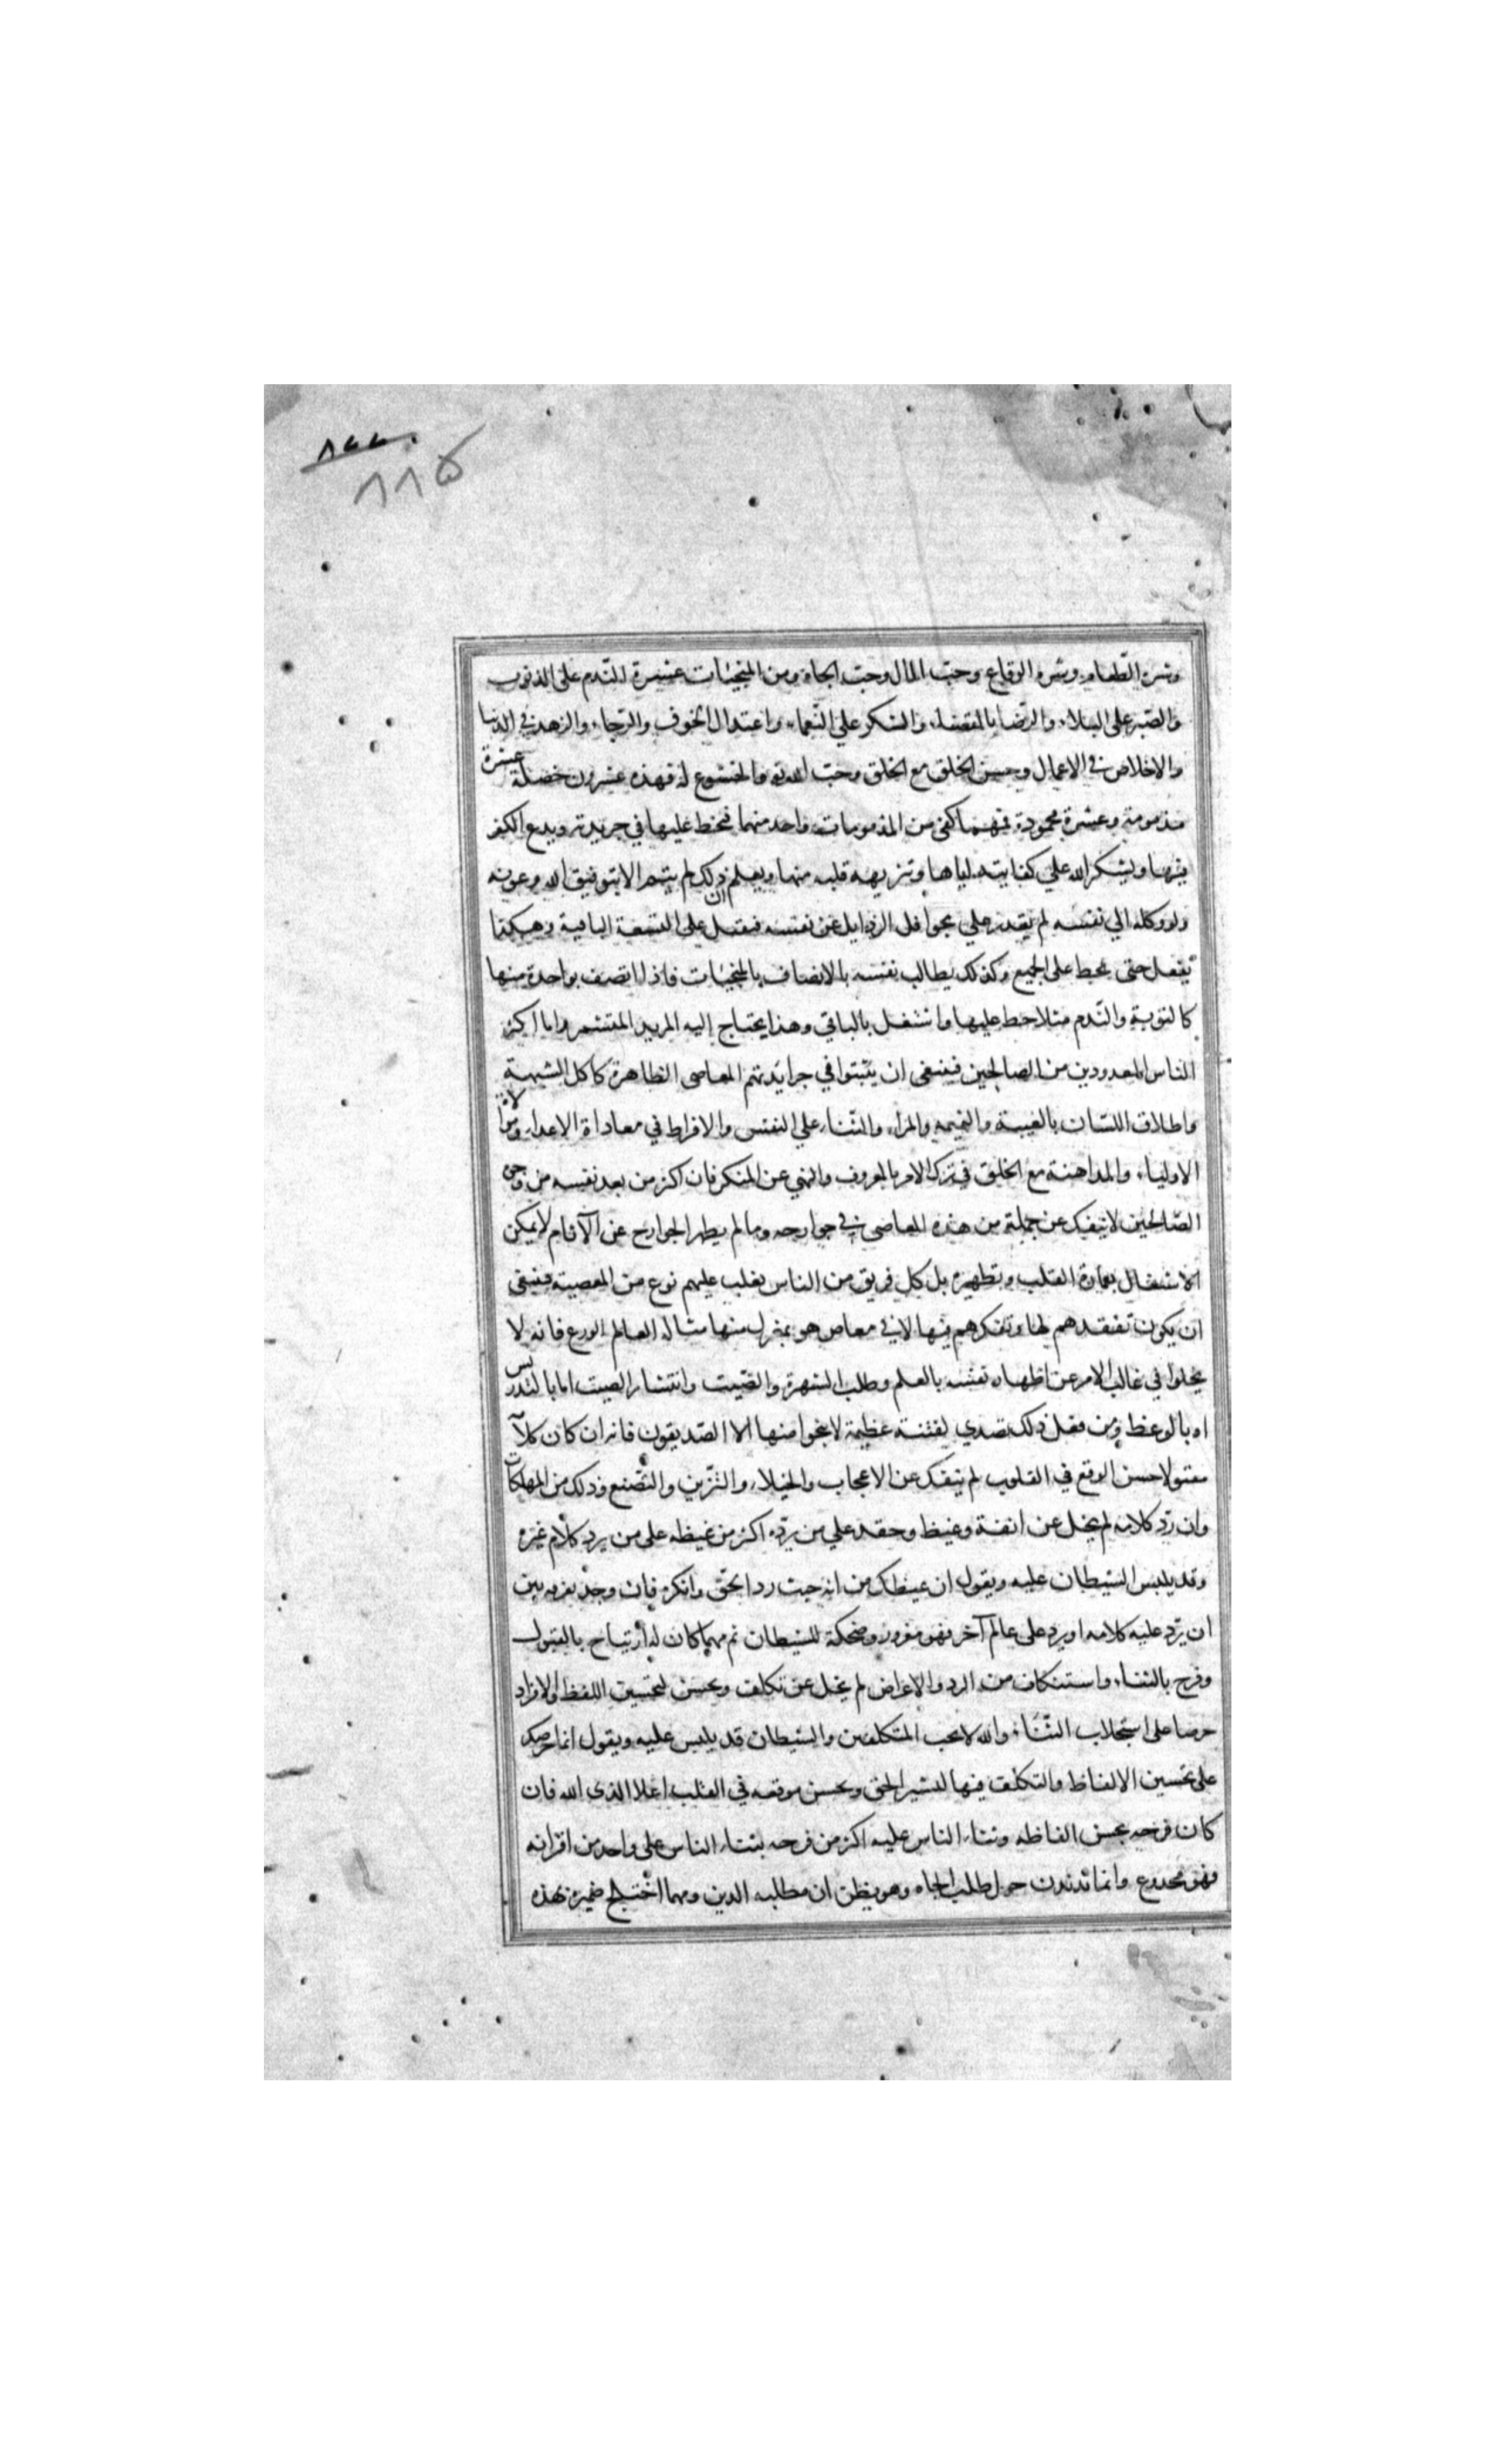 ٨٧٧
٨٨٥
وشره الطعام وشره الوقاع وحبّ المال وحبّ الجاه ومن المنجيات عشرة الندم على الذنوب
والصّبر على البلاء والرّضا بالقضاء والشكر على النّعماء واعتدال الخوف والرّجاء والزهد في الدنيا
والاخلاص في الاعمال وحسن الخلق مع الخلق وحبّ الله تع والخشوع له فهذه عشرون خصلة عشرة
مذمومة وعشرة محمودة فمهما كفى من المذمومات واحد منهما فيخط عليها في جريدته ويدع الفكر
فيها ويشكر الله على كفايته اياها وتنزيهه قلبه منها ويعلم ان ذلك لم يتم الا بتوفيق الله وعونه
ولو وكله الى نفسه لم يقدر على محو اقل الرذايل عن نفسه فيقبل على التسعة الباقية وهكذا
يفعل حتى يخط على الجميع وكذلك يطالب نفسه بالاتصاف بالمنجيات فاذا اتصف بواحدة منها
كالتوبة والنّدم مثلا خط عليها واشتغل بالباقي وهذا يحتاج إليه المريد المتشمر واما اكثر
الناس المعدودين من الصالحين فينبغى ان يثبتوا في جرائدهم المعاصى الظاهرة كاكل الشبهة
واطلاق اللسّان بالغيبة والنميمه والمراء والثّناء على النفس والافراط في معاداة الاعداء وموالاة
الاولياء والمداهنة مع الخلق في ترك الامر بالمعروف والنهي عن المنكر فان اكثر من يعد نفسه من وجوه
الصّالحين لا ينفك عن جملة من هذه المعاصى في جوارحه وما لم يطهر الجوارح عن الآثام لا يمكن
الاشتغال بعمارة القلب وتطهيره بل كل فريق من الناس يغلب عليهم نوع من المعصية فينبغى
ان يكون تفقدهم لها وتفكرهم فيها لا في معاص هو بمعزل منها مثاله العالم الورع فانه لا
يخلوا في غالب الامر عن اظهار نفسه بالعلم وطلب الشهرة والصّيت وانتشار الصيت اما بالتدريس
او بالوعظ ومن فعل ذلك تصدي لفتنة عظيمة لا ينجوا منها الا الصّديقون فانه ان كان كلامه
مقبولا حسن الوقع في القلوب لم ينفك عن الاعجاب والخيلاء والتزّين والتصّنع وذلك من المهلكات
وان ردّ كلامه لم يخل عن انفة وغيظ وحقد على من يردّه اكثر من غيظه على من يرد كلام غيره
وقد يلبس الشيطان عليه ويقول ان غيظك من انه حيث رد الحقّ وانكره فان وجد تفرقه بين
ان يردّ عليه كلامه او يرد على عالم آخر فهو مغرور وضحكة للشيطان ثم مهما كان له ارتياح بالقبول
وفرح بالثناء واستنكاف من الرد والاعراض لم يخل عن تكلف وتحسن لتحسين اللفظ والايراد
حرصا على استجلاب الثّناء والله لا يحب المتكلفين والشيطان قد يلبس عليه ويقول انما حرصك
على تحسين الالفاظ والتكلف فيها لتنشير الحق ويحسن موقعه في القلب اعلاء لدين الله فان
كان فرحه بحسن الفاظه وثناء الناس عليه اكثر من فرحه بثناء الناس على واحد من اقرانه
فهو مخدوع وانما تدندن حول طلب الجاه وهو يظن ان مطلبه الدين ومهما اختلج ضميره بهذه